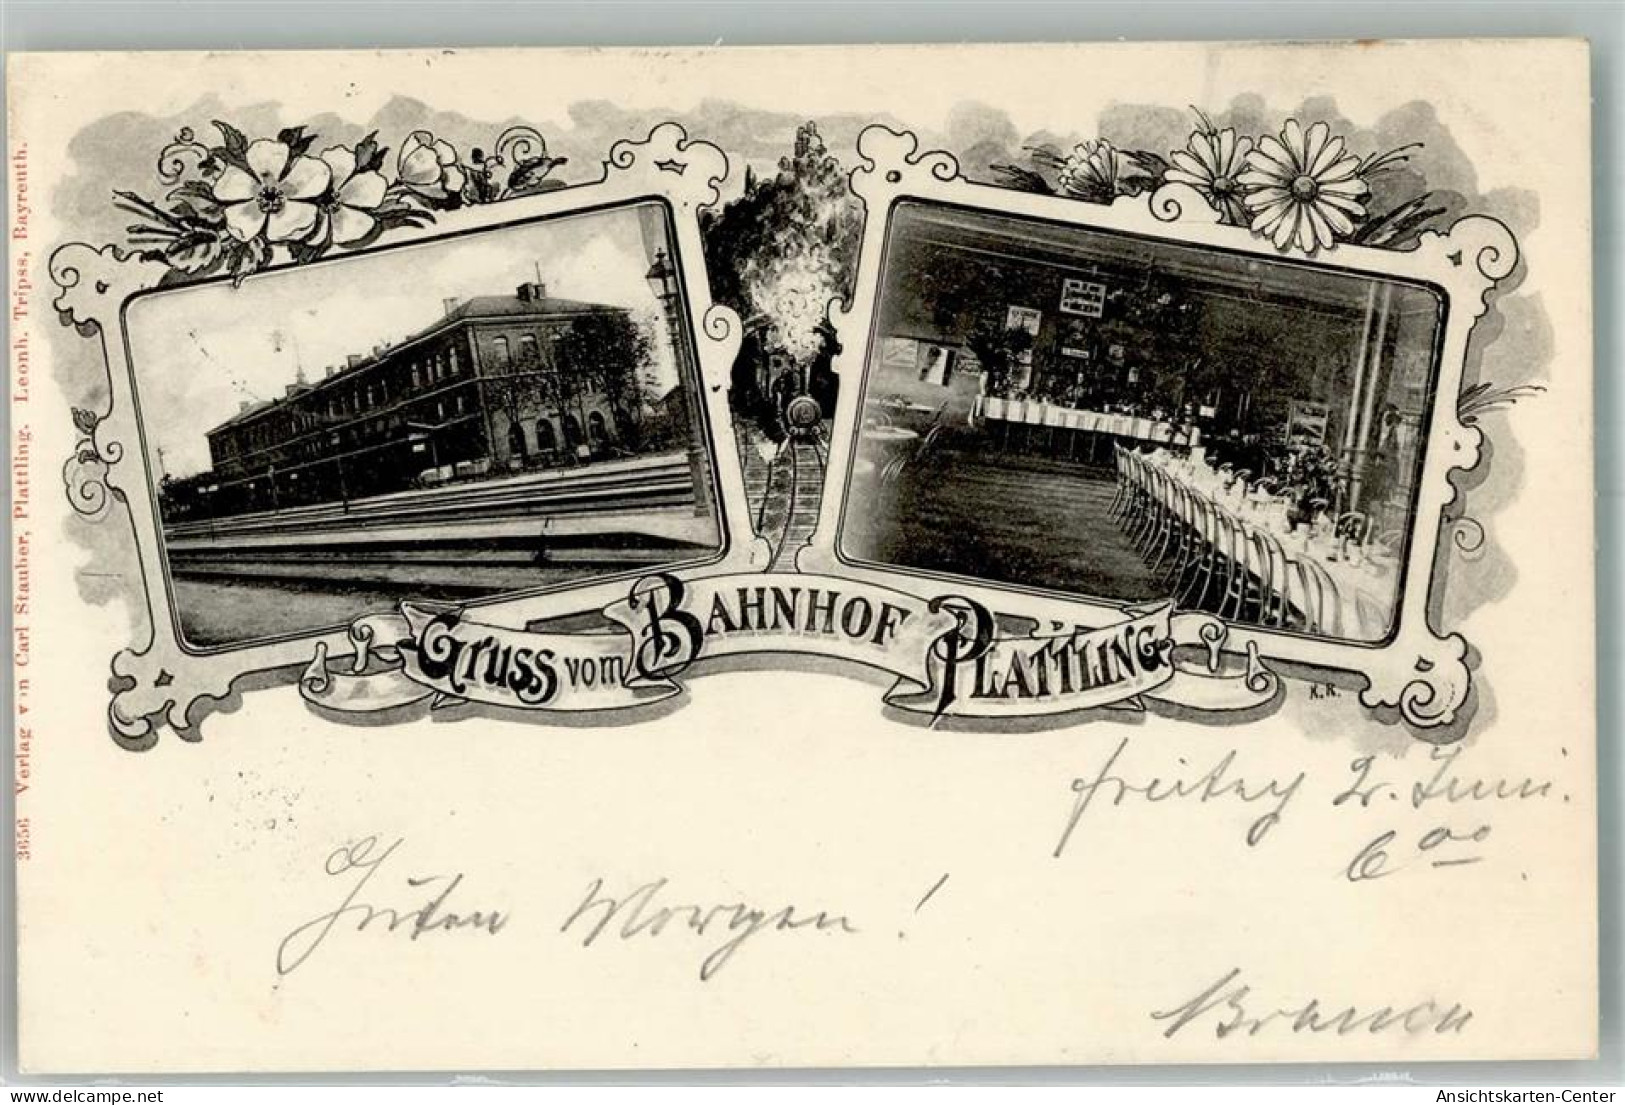 3656 Verlag von Carl Stauber, Plattling. Leonh. Tripss, Bayreuth.
Gruss vom Bahnhof Plattling
K.R.
Freitag 2. Juni.
6 00
Guten Morgen!
oldthing.de
Ansichtskarten-Center